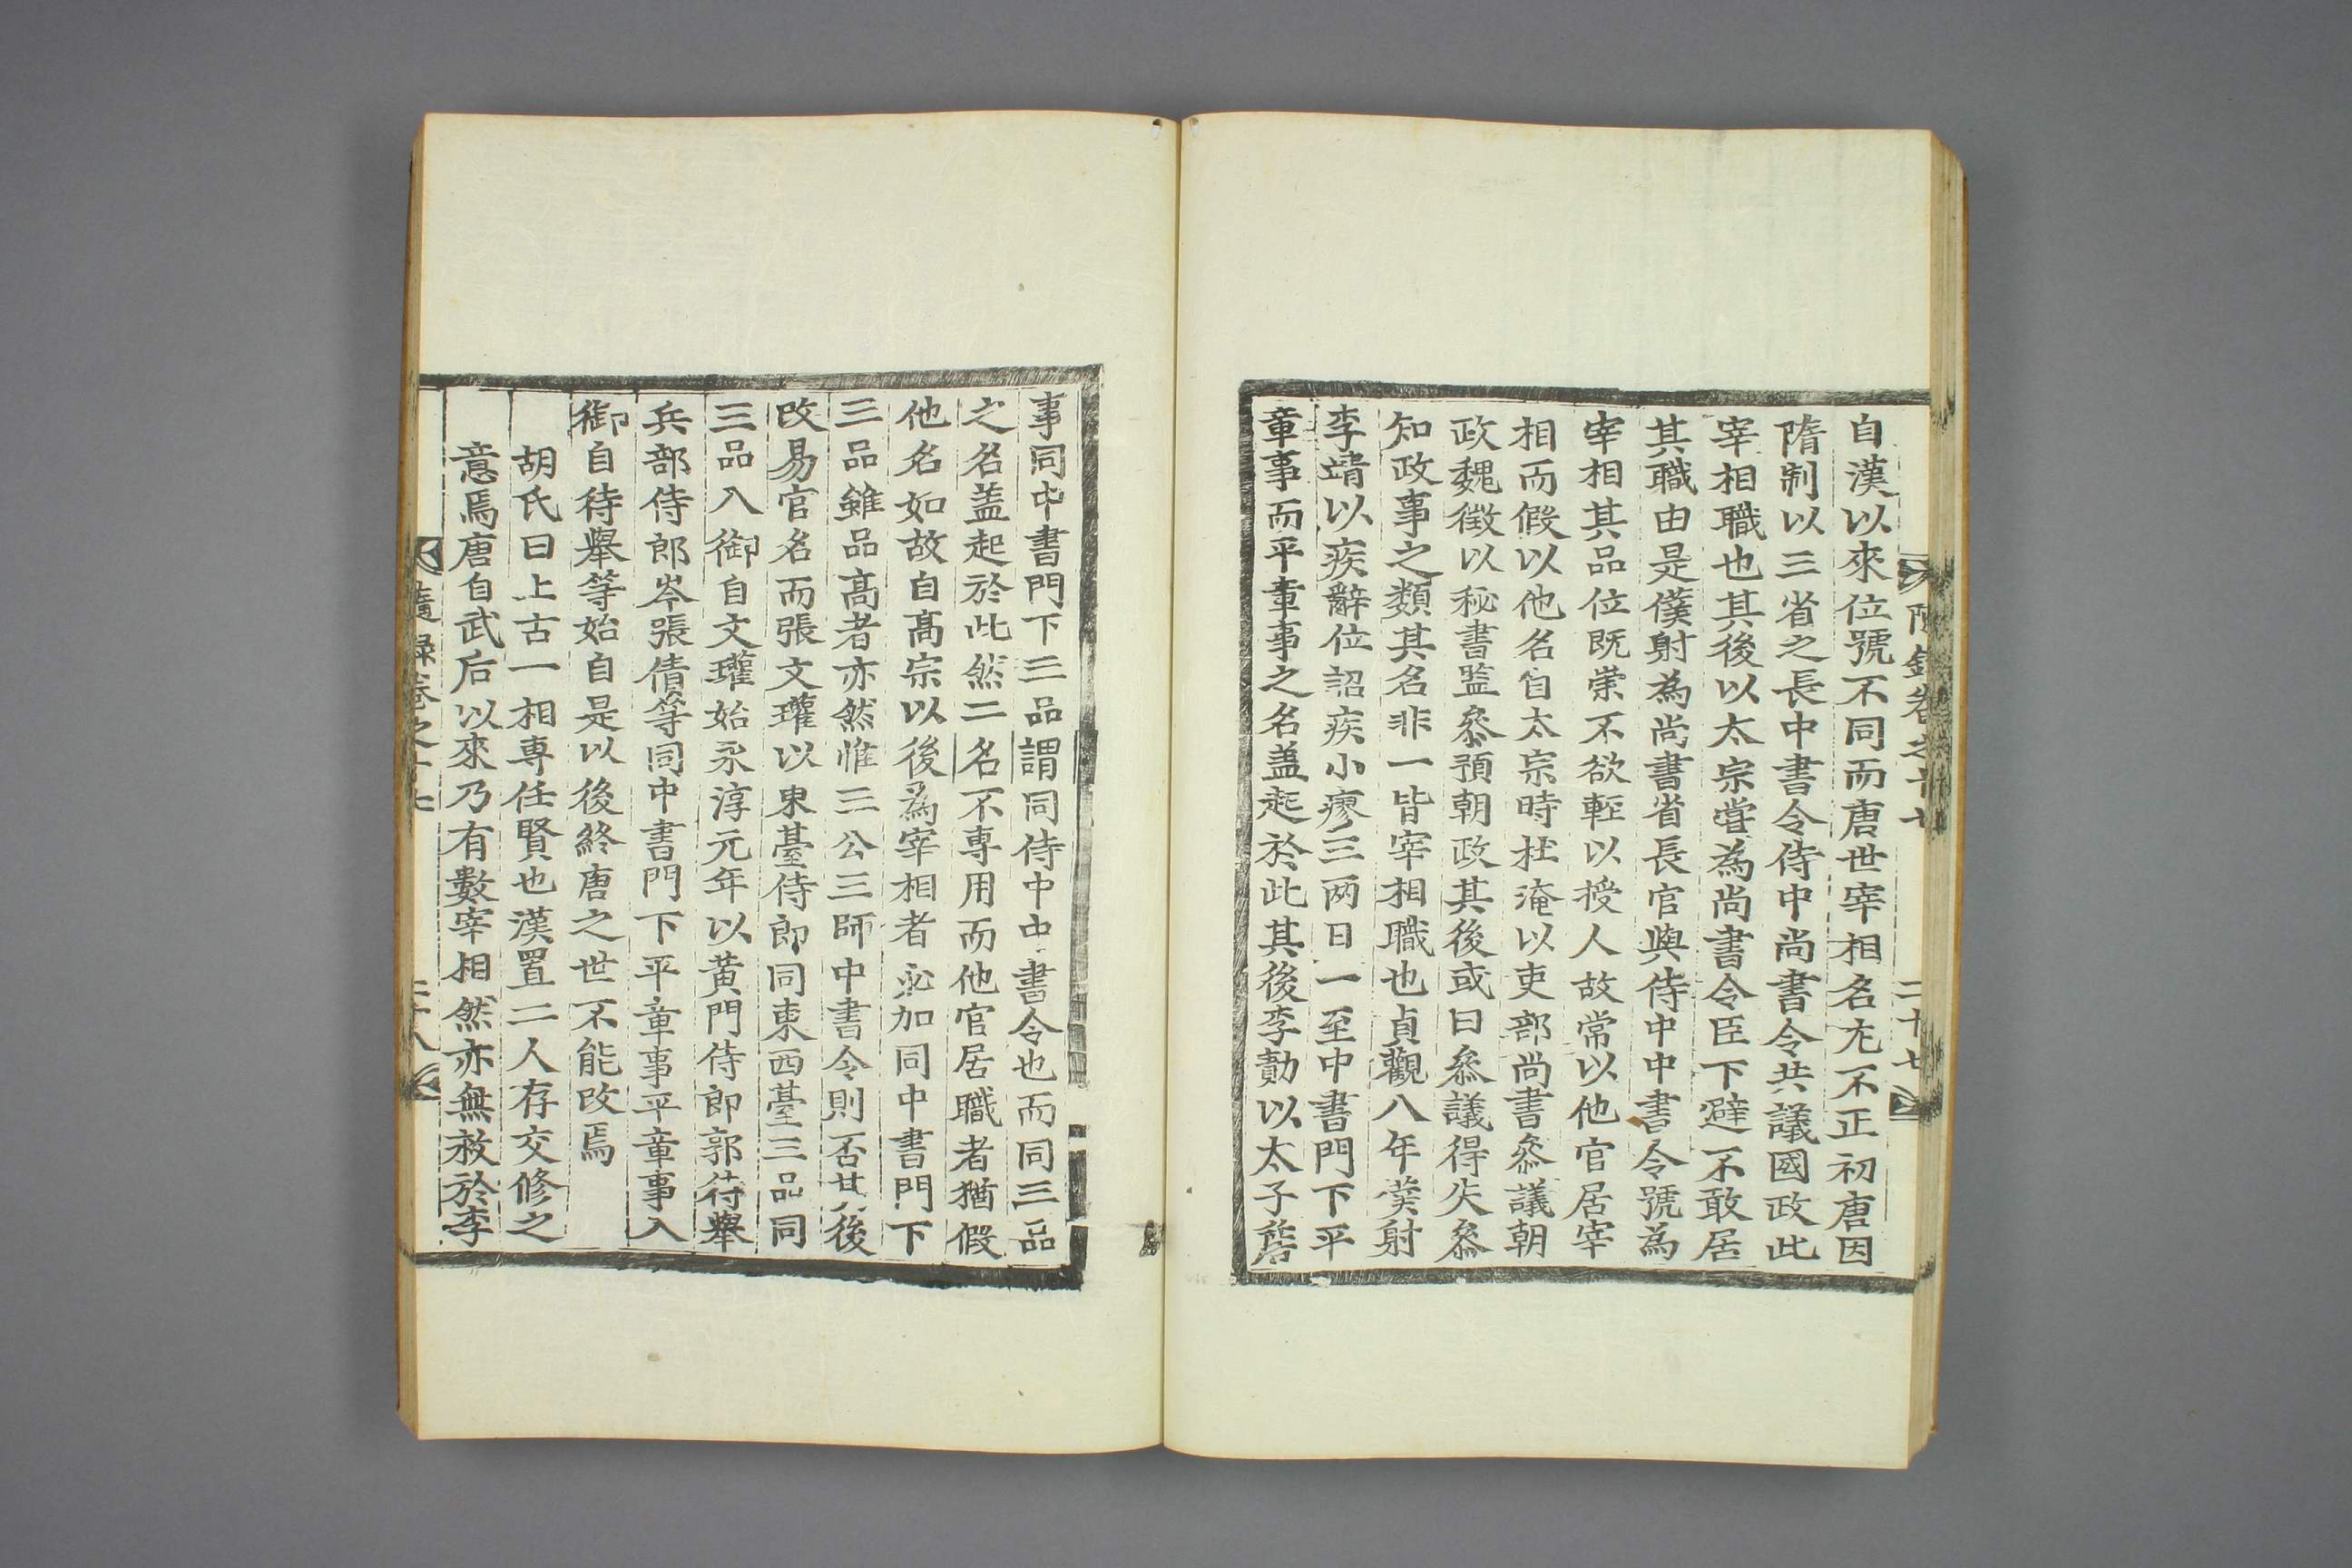 自漢以來位號不同而唐世宰相名尢不正初唐因
隋制以三省之長中書令侍中尚書令共議國政此
宰相職也其後以太宗嘗為尚書令臣下避不敢居
其職由是僕射為尚書省長官與侍中中書令號為
宰相其品位既崇不欲輕以授人故常以他官居宰
相而假以他名自太宗時杜淹以吏部尚書叅議朝
政魏徵以秘書監叅預朝政其後或曰叅議得失叅
知政事之類其名非一皆宰相職也貞觀八年僕射
李靖以疾辭位詔疾小瘳三兩日一至中書門下平
章事而平章事之名盖起於此其後李勣以太子詹
二十七
事同中書門下三品謂同侍中中書令也而同三品
之名盖起於此然二名不專用而他官居職者猶假
他名如故自高宗以後為宰相者必加同中書門下
三品雖品高者亦然惟三公三師中書令則否其後
改易官名而張文瓘以東臺侍郎同東西臺三品同
三品入御自文瓘始永淳元年以黃門侍郎郭待舉
兵部侍郎岑張倩等同中書門下平章事平章事入
御自待舉等始自是以後終唐之世不能改焉
胡氏曰上古一相專任賢也漢置二人存交修之
意焉唐自武后以來乃有數宰相然亦無救於李